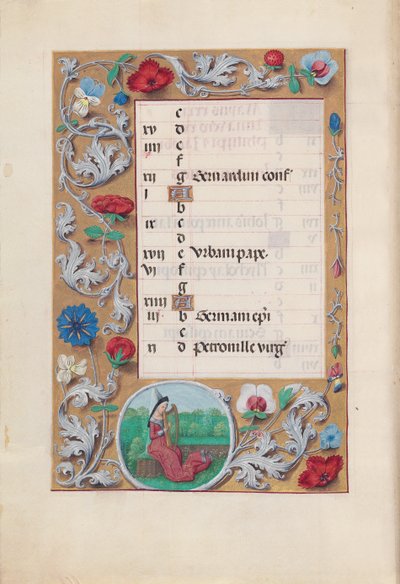 c
xv d
iiii e
f
xii g Bernardini conf'
i A
b
ix c
d
xvii e Urbani pape.
vi f
g
xiiii A
iii b Germani epi
c
ii d Petronille virg'